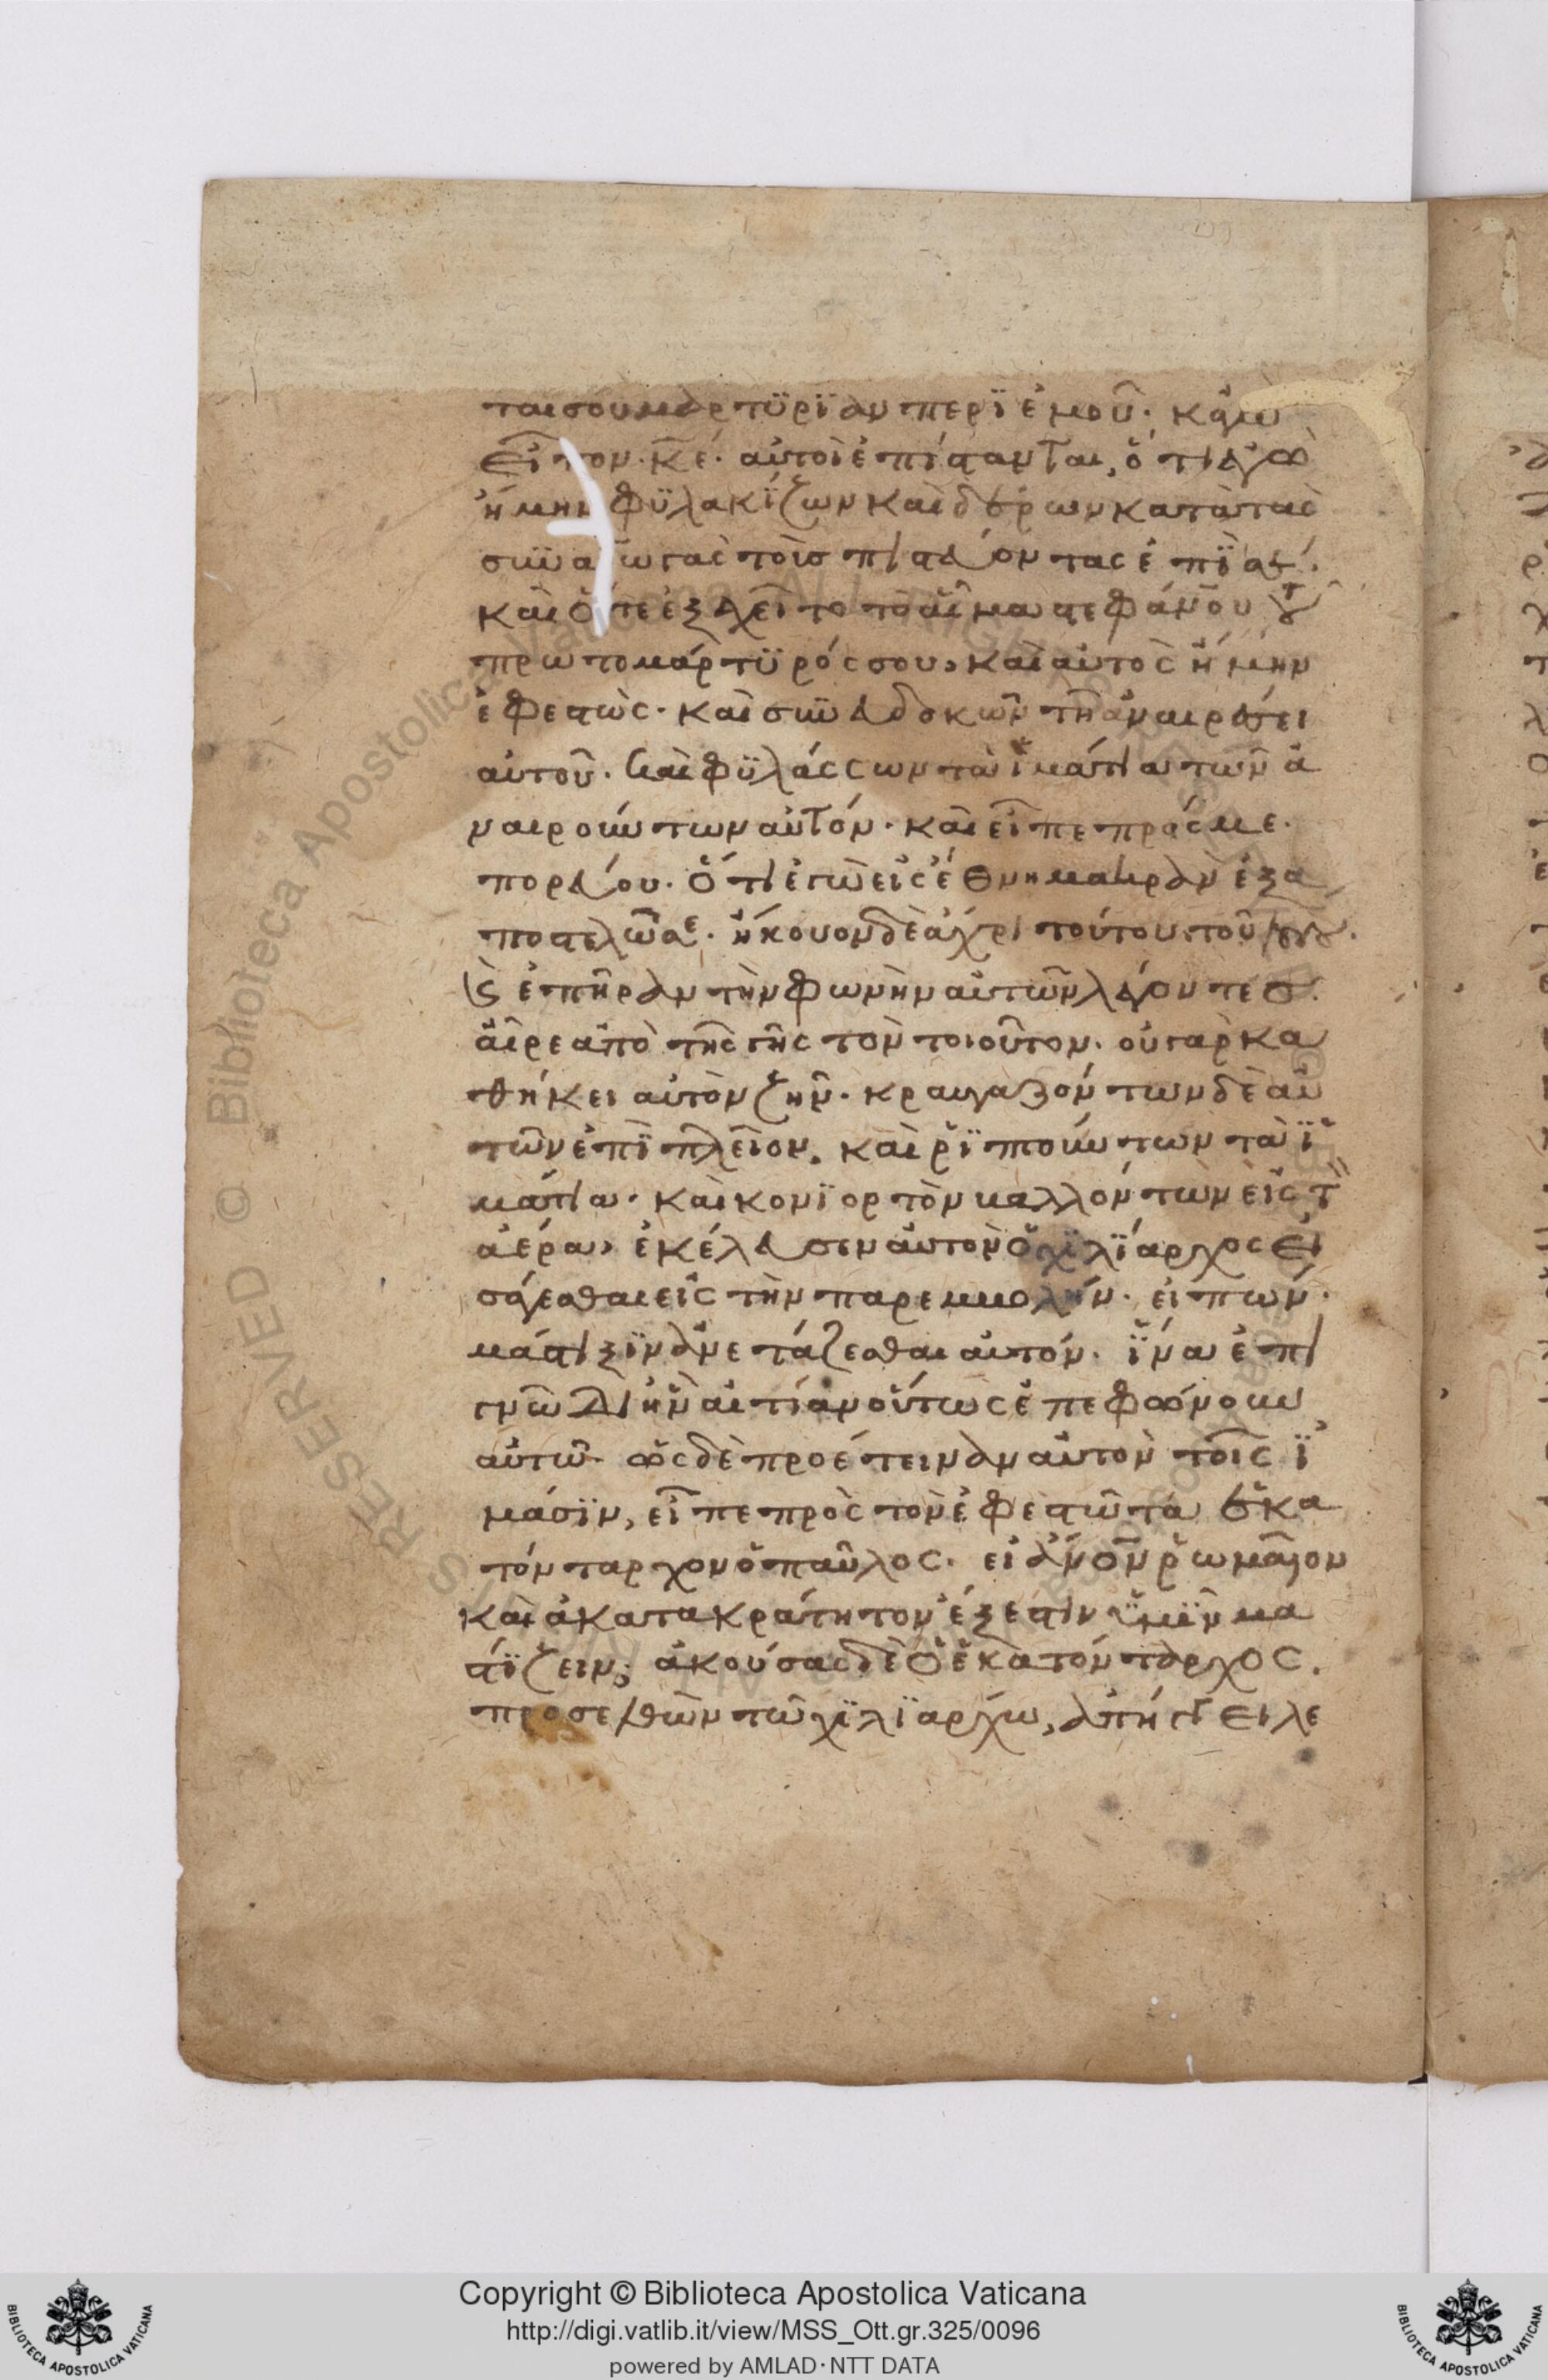 ται σου μαρτϋρϊαν περϊ ἐμοῦ· κἀγω
εἶπον· κ̅ε̅· αὐτοὶ ἐπίστανται, ὅτι ἐγὼ
ἤμην φϋλακΐζων καὶ δέρων κατὰ τὰς
συναγωγὰς τοὺς πιστεύοντας ἐπῒ σέ·
καὶ ὅτε ἐξεχεῖτο τὸ αἷμα στεφάνου τοῦ
πρωτομάρτϋρός σου, καὶ αὐτὸς ἤμην
ἐφεστὼς· καὶ συνευδοκῶν τῆ ἀναιρέσει
αὐτοῦ· καὶ φϋλάςςων τὰ ἱμάτια τῶν ἀ
ναιρούντων αὐτόν· καὶ εἶπε πρός με·
πορεύου· ὅτι ἐγὼ εἰς ἔθνη μακρὰν ἐξα
ποστελῶ σε· ἤκουον δὲ ἄχρι τούτου τοῦ λόγου·
ϗ ἐπῆραν τὴν φωνὴν αὐτῶν λέγοντες·
αἶρε ἀπὸ τῆς γῆς τὸν τοιοῦτον· οὐ γὰρ κα
θῆκει αὐτὸν ζῆν· κραυγαζόντων δὲ αὐ
τῶν ἐπῒ πλεῖον, καὶ ῥϊπτούντων τὰ ϊ
μάτια· καὶ κονϊορτὸν βαλλόντων εἰς τὸν
ἀέρα, ἐκέλευσεν αὐτὸν ὁ χϊλϊαρχος εἰ
σάγεσθαι εἰς τὴν παρεμβολήν· εἰπών·
μάστιξϊν ἀνετάζεσθαι αὐτόν· ἵνα ἐπι
γνῶ δι ἣν αἰτίαν οὕτως ἐπεφώνουν
αὐτῶ· ὡς δὲ προέτειναν αὐτὸν τοῖς ϊ
μάσϊν, εἶπε πρὸς τὸν ἐφεστῶτα ἑκα
τόνταρχον ὁ παῦλος· εἰ ἄνον ῥωμαῖον
καὶ ἀκατακράτητον ἔξεστιν ϋμῖν μα
στΐζειν; ἀκούσας δὲ ὁ ἑκατόνταρχος,
προσελθὼν τῶ χϊλϊάρχω, ἀπήγγειλε
Copyright © Biblioteca Apostolica Vaticana
http://digi.vatlib.it/view/MSS_Ott.gr.325/0096
powered by AMLAD·NTT DATA